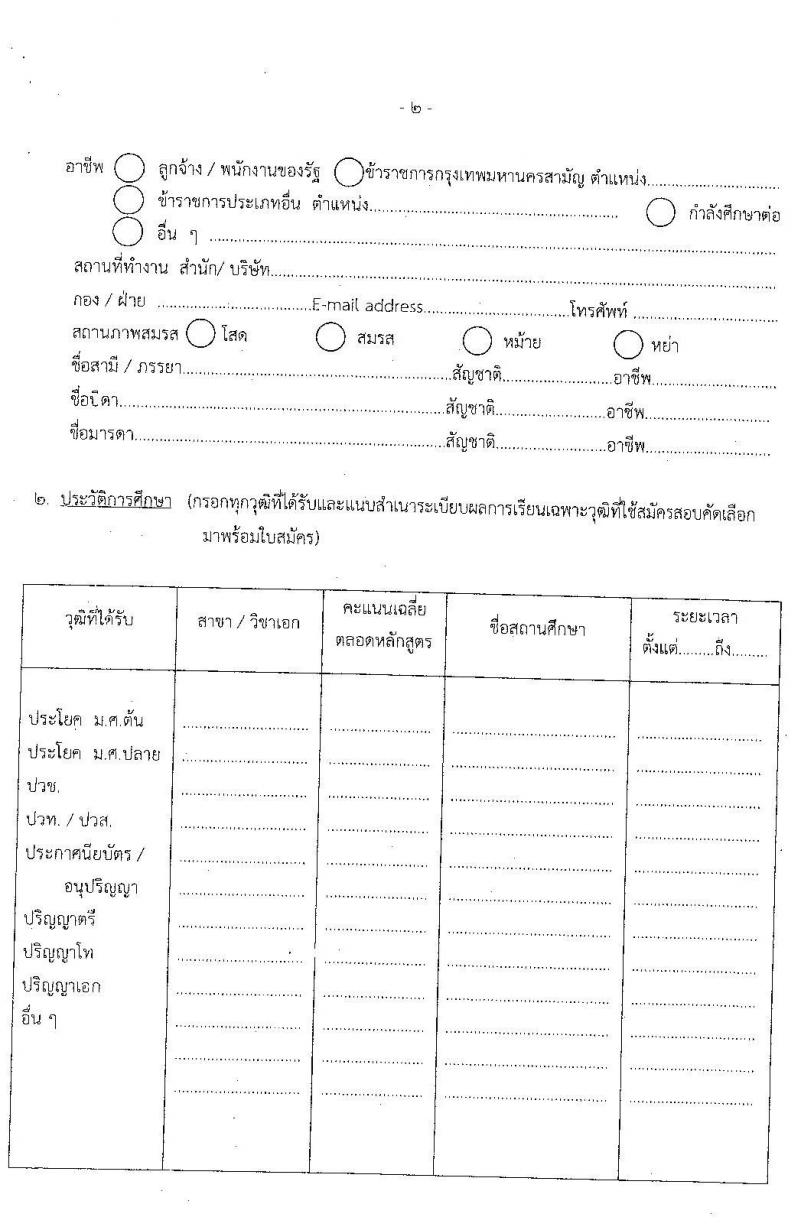 - ๒ -
อาชีพ ลูกจ้าง / พนักงานของรัฐ ข้าราชการกรุงเทพมหานครสามัญ ตำแหน่ง....................
ข้าราชการประเภทอื่น ตำแหน่ง.................... กำลังศึกษาต่อ
อื่น ๆ ....................
สถานที่ทำงาน สำนัก/ บริษัท....................
กอง / ฝ่าย ....................E-mail address....................โทรศัพท์ ....................
สถานภาพสมรส โสด สมรส หม้าย หย่า
ชื่อสามี / ภรรยา....................สัญชาติ....................อาชีพ....................
ชื่อบิดา....................สัญชาติ....................อาชีพ....................
ชื่อมารดา....................สัญชาติ....................อาชีพ....................
๒. ประวัติการศึกษา (กรอกทุกวุฒิที่ได้รับและแนบสำเนาระเบียบผลการเรียนเฉพาะวุฒิที่ใช้สมัครสอบคัดเลือก
มาพร้อมใบสมัคร)
วุฒิที่ได้รับ สาขา / วิชาเอก คะแนนเฉลี่ย ชื่อสถานศึกษา ระยะเวลา
ตลอดหลักสูตร ตั้งแต่.........ถึง.........
ประโยค ม.ศ.ต้น
ประโยค ม.ศ.ปลาย
ปวช.
ปวท. / ปวส.
ประกาศนียบัตร /
อนุปริญญา
ปริญญาตรี
ปริญญาโท
ปริญญาเอก
อื่น ๆ